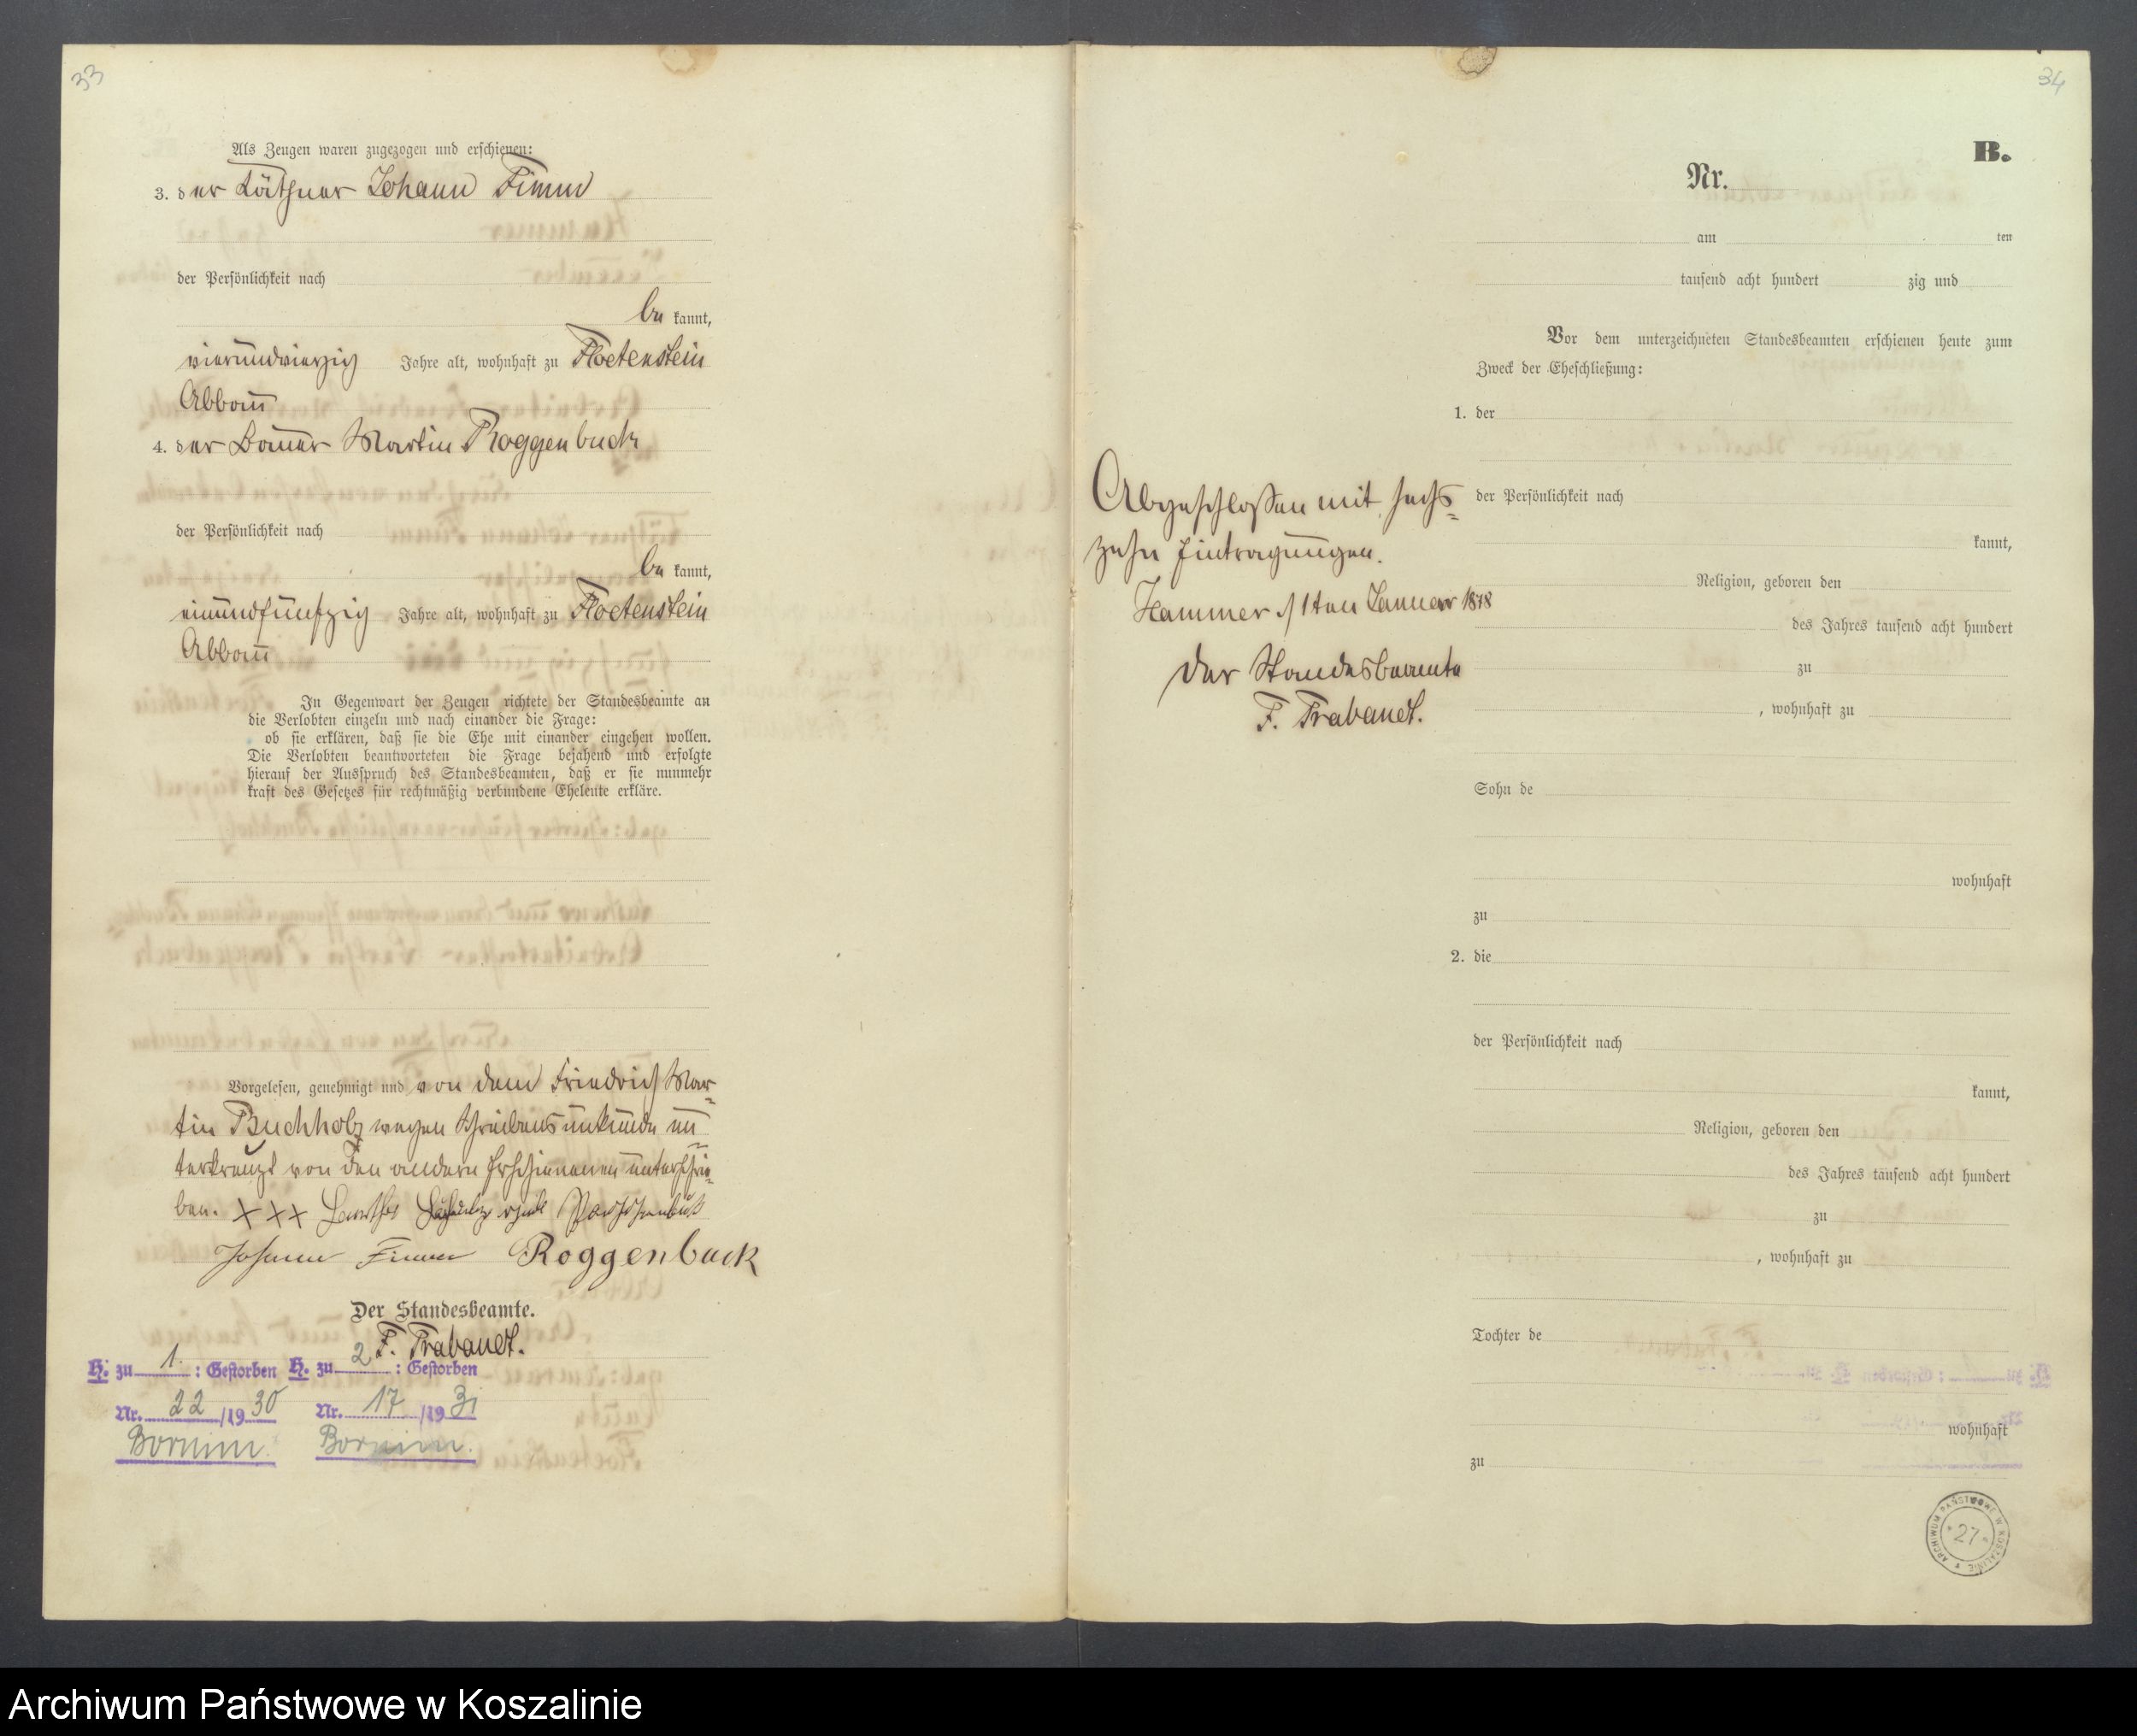 33
Als Zeugen waren zugezogen und erschienen:
3. der Käthner Johann Timm
der Persönlichkeit nach
be kannt,
vierundvierzig Jahre alt, wohnhaft zu Floetenstein
Abbau
4. der Bauer Martin Roggenbuck
der Persönlichkeit nach
be kannt,
einundfünfzig Jahre alt, wohnhaft zu Floetenstein
Abbau
In Gegenwart der Zeugen richtete der Standesbeamte an
die Verlobten einzeln und nach einander die Frage:
ob sie erklären, daß sie die Ehe mit einander eingehen wollen.
Die Verlobten beantworteten die Frage bejahend und erfolgte
hierauf der Ausspruch des Standesbeamten, daß er sie nunmehr
kraft des Gesetzes für rechtmäßig verbundene Eheleute erkläre.
Vorgelesen, genehmigt und von dem Friedrich Mar-
tin Buchholz wegen Schreibensunkunde un-
terkreuzt von den andern Erschienenen unterschrie-
ben. XXX
Johann Timm Roggenbuck
Der Standesbeamte.
F. Trabandt.
H. zu 1. : Gestorben H. zu 2 : Gestorben
Nr. 22 /1930 Nr. 17 /1931
Bornim. Bornim.
34
B.
Nr.
am ten
tausend acht hundert zig und
Vor dem unterzeichneten Standesbeamten erschienen heute zum
Zweck der Eheschließung:
1. der
der Persönlichkeit nach
kannt,
Religion, geboren den
des Jahres tausend acht hundert
zu
, wohnhaft zu
Sohn de
wohnhaft
zu
2. die
der Persönlichkeit nach
kannt,
Religion, geboren den
des Jahres tausend acht hundert
zu
, wohnhaft zu
Tochter de
wohnhaft
zu
Abgeschlossen mit sechs-
zehn Eintragungen.
Hammer d 1ten Januar 1878
Der Standesbeamte
F. Trabandt.
ARCHIWUM PAŃSTWOWE W KOSZALINIE
27
Archiwum Państwowe w Koszalinie